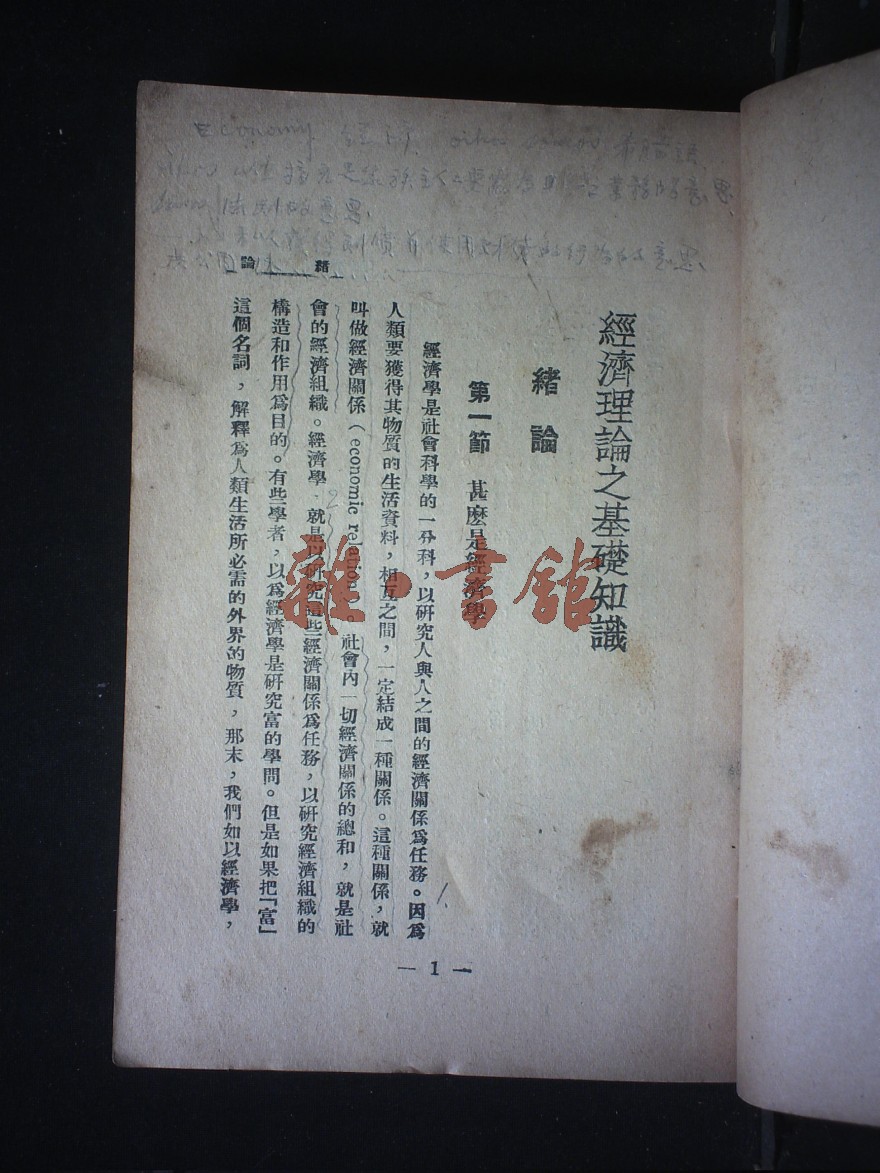 Economy
緒論
經濟理論之基礎知識
緒論
第一節 甚麽是經濟學
經濟學是社會科學的一分科，以研究人與人之間的經濟關係爲任務。因爲
人類要獲得其物質的生活資料，相互之間，一定結成一種關係。這種關係，就
叫做經濟關係（economic relation）。社會內一切經濟關係的總和，就是社
會的經濟組織。經濟學，就是以研究這些經濟關係爲任務，以研究經濟組織的
構造和作用爲目的。有些學者，以爲經濟學是研究富的學問。但是如果把「富」
這個名詞，解釋爲人類生活所必需的外界的物質，那末，我們如以經濟學，
— 1 —
雜·書館